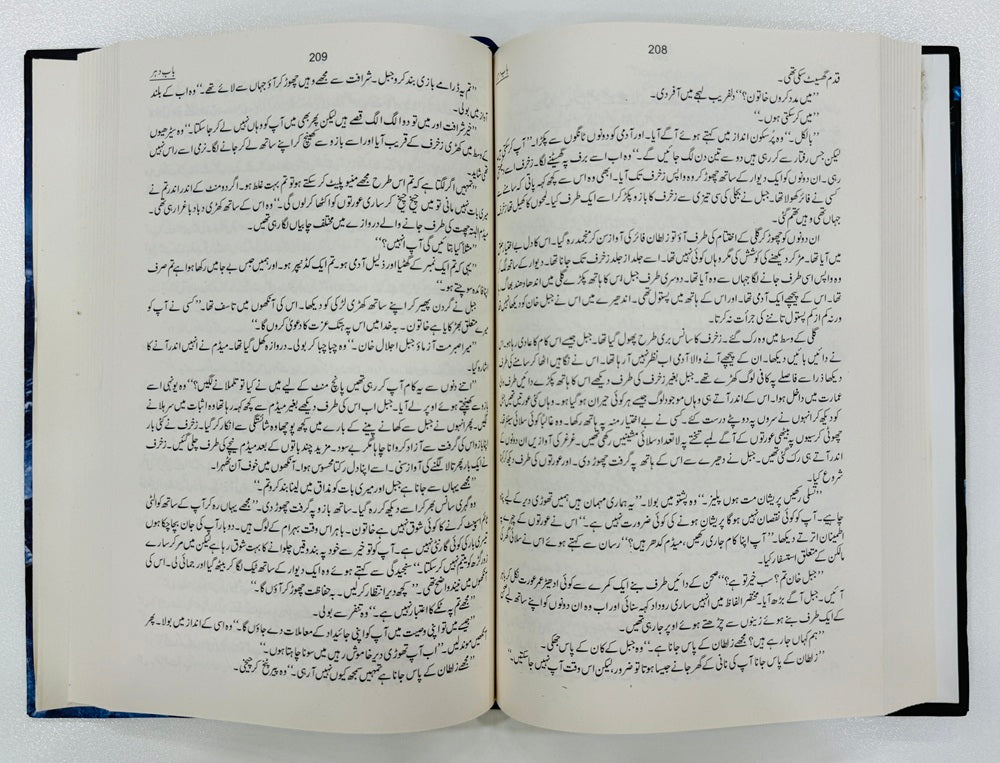 208
قدم گھسیٹ سکی تھی۔
"میں مدد کروں خاتون؟" دلفریب لہجے میں آفر دی۔
"میں کر سکتی ہوں۔"
"بالکل۔" وہ پُرسکون انداز میں کہتے ہوئے آگے آیا۔ اور آدمی کو دونوں ٹانگوں سے پکڑا۔ "آپ کر سکتی
لیکن جس رفتار سے کر رہی ہیں دو سے تین دن لگ جائیں گے۔" وہ اب اسے برف پہ گھسیٹنے لگا۔ زخرف اسے
رہی۔ ان دونوں کو ایک دیوار کے ساتھ چھوڑ کر وہ واپس زخرف تک آیا۔ ابھی وہ اس سے کچھ کہہ پاتی کہ سامنے
کسی نے فائر کھولا تھا۔ جبل نے بجلی کی سی تیزی سے زخرف کا بازو پکڑ کر اسے ایک طرف کیا۔ لمحوں کا کھیل تھا
جہاں تھی وہیں تھم گئی۔
ان دونوں کو چھوڑ کر گلی کے اختتام کی طرف آؤ تو زلطان فائر کی آواز سن کر منجمد رہ گیا۔ اس کا دل بے اختیار
میں آیا تھا۔ مڑ کر دیکھنے کی کوشش کی مگر وہاں کوئی نہیں تھا۔ اسے جلد از جلد زخرف تک جانا تھا۔ دیوار کے ساتھ
وہ واپس اسی طرف جانے لگا جہاں سے وہ آیا تھا۔ دوسری طرف جبل اس کا ہاتھ پکڑے گلی میں اندھا دھند بھاگ
تھا۔ اس کے پیچھے ایک آدمی تھا۔ اور اس کے ہاتھ میں پستول تھی۔ اندھیرے میں اس نے جبل خان کو دیکھا نہیں
ورنہ کم از کم پستول تاننے کی جرأت نہ کرتا۔
گلی کے وسط میں وہ رک گئے۔ زخرف کا سانس بری طرح پھول گیا تھا۔ جبل جیسے اس کام کا عادی رہا ہو۔
نے دائیں بائیں دیکھا۔ ان کے پیچھے آنے والا آدمی اب نظر نہیں آ رہا تھا۔ اس نے نگاہیں اٹھا کر سامنے کی
دیکھا ذرا سے فاصلے پہ کافی لوگ کھڑے تھے۔ جبل بغیر زخرف کی طرف دیکھے اس کا ہاتھ پکڑے دائیں طرف
عمارت میں داخل ہوا۔ اس کے اندر آتے ہی وہاں موجود لوگ جیسے ہر کوئی حیران ہو گیا ہو۔ وہاں کئی عورتیں تھیں
کو دیکھ کر انہوں نے سروں پہ دوپٹے درست کئے۔ کسی نے بے اختیار منہ پہ ہاتھ رکھا۔ وہ غالباً کوئی سلائی
چھوٹی کرسیوں پہ بیٹھی عورتوں کے آگے لمبے تختے پہ لاتعداد سلائی مشینیں رکھی تھیں۔ غرغر کی آوازیں ان دونوں کے
اندر آتے ہی رک گئی تھیں۔ جبل نے دھیرے سے اس کے ہاتھ پہ گرفت چھوڑ دی۔ اور عورتوں کی طرف دیکھ کر
شروع کیا۔
"تسلی رکھیں پریشان مت ہوں پلیز۔" وہ پشتو میں بولا۔ "یہ ہماری مہمان ہیں ہمیں تھوڑی دیر کے لیے پناہ
چاہیے۔ آپ کو کوئی نقصان نہیں ہوگا پریشان ہونے کی کوئی ضرورت نہیں ہے۔" اس نے عورتوں کے چہرے
اطمینان اترتے دیکھا۔ "آپ اپنا کام جاری رکھیں، میڈم کدھر ہیں؟" رسان سے کہتے ہوئے اس نے سلائی گھر کی
مالکن کے متعلق استفسار کیا۔
"جبل خان تم؟ سب خیر تو ہے؟" صحن کے دائیں طرف بنے ایک کمرے سے کوئی ادھیڑ عمر عورت نکل کر باہر
آئیں۔ جبل آگے بڑھ آیا۔ مختصر الفاظ میں انہیں ساری روداد کہہ سنائی اور اب وہ ان دونوں کو اپنے ساتھ لیے
کے ایک طرف بنے ہوئے زینوں سے چڑھتے ہوئے اوپر جا رہی تھیں۔
"ہم کہاں جا رہے ہیں؟ مجھے زلطان کے پاس جانا ہے۔" وہ جبل کے کان کے پاس جھکی۔
"زلطان کے پاس جانا آپ کی نانی کے گھر جانے جیسا ہوتا تو ضرور، لیکن اس وقت آپ نہیں جا سکتیں۔"
209
باب دہر
"تم یہ ڈرامے بازی بند کرو جبل۔ شرافت سے مجھے وہیں چھوڑ کر آؤ جہاں سے لائے تھے۔" وہ اب کے بلند
آواز میں بولی۔
"خیر شرافت اور میں تو دو الگ الگ قصے ہیں لیکن پھر بھی میں آپ کو وہاں نہیں لے کر جا سکتا۔" وہ سیڑھیوں
کے وسط میں کھڑی زخرف کے قریب آیا اور اسے بازو سے کھینچ کر اپنے ساتھ لے کر جانے لگا۔ نرمی اسے راس نہیں
تھی شاید۔
"تمہیں اگر لگتا ہے کہ تم اس طرح مجھے مینوپلیٹ کر سکتے ہو تو تم بہت غلط ہو۔ اگر دو منٹ کے اندر اندر تم نے
میری بات نہیں مانی تو میں چیخ چیخ کر ساری عورتوں کو اکٹھا کر لوں گی۔" وہ اس کے ساتھ کھڑی دبا دبا غرا رہی تھی۔
میڈم البتہ چھت کی طرف جانے والے دروازے میں مختلف چابیاں لگا رہی تھیں۔
"مثلاً کیا بتائیں گی آپ انہیں؟"
"یہی کہ تم ایک نمبر کے گھٹیا اور ذلیل آدمی ہو۔ تم ایک کڈنیپر ہو۔ اور ہمیں حبس بے جا میں رکھا ہوا ہے تم صرف
اپنا فائدہ سوچتے ہو۔"
جبل نے گردن پھیر کر اپنے ساتھ کھڑی لڑکی کو دیکھا۔ اس کی آنکھوں میں تاسف تھا۔ "کسی نے آپ کو
میرے متعلق بھڑکایا ہے خاتون۔ بہ خدا میں اس پہ ہتک عزت کا دعویٰ کروں گا۔"
"میرا صبر مت آزماؤ جبل اجلال خان۔" وہ چبا چبا کر بولی۔ دروازہ کھل گیا تھا۔ میڈم نے انہیں اندر آنے کا
اشارہ کیا۔
"اتنے دنوں سے یہ کام آپ کر رہی تھیں پانچ منٹ کے لیے میں نے کیا تو تلملانے لگیں؟" وہ یونہی اسے
بازو سے کھینچتے ہوئے اوپر لے آیا۔ جبل اب اس کی طرف دیکھے بغیر میڈم سے کچھ کہہ رہا تھا وہ اثبات میں سر ہلانے
لگیں۔ پھر انہوں نے جبل سے کھانے پینے کے بارے میں کچھ پوچھا وہ شائستگی سے انکار کر گیا۔ زخرف نے کئی بار
اپنا بازو اس کی گرفت سے آزاد کروانا چاہا مگر بے سود۔ مزید چند باتوں کے بعد میڈم نیچے کی طرف چلی گئیں۔ زخرف
نے ایک بار پھر تالا لگنے کی آواز سنی۔ اسے اپنا دل رکتا محسوس ہوا۔ آنکھوں میں خوف آن ٹھہرا۔
"مجھے یہاں سے جانا ہے جبل اور میری بات کو مذاق میں لینا بند کرو تم۔"
وہ گہری سانس بھر کر اسے دیکھ کر رہ گیا۔ ساتھ بازو پہ گرفت چھوڑ دی۔ "مجھے یہاں رہ کر آپ کے ساتھ کوالٹی
ٹائم اسپینڈ کرنے کا کوئی شوق نہیں ہے خاتون۔ باہر اس وقت بہرام کے لوگ ہیں۔ دو بار آپ کی جان بچا چکا ہوں
تیسری بار کی کوئی گارنٹی نہیں ہے۔ آپ کو تو خیر سے خود پہ بندوقیں چلوانے کا بہت شوق رہا ہے لیکن میں مر کر سارے
زورگڑھ کو یتیم نہیں کر سکتا۔" سنجیدگی سے کہتے ہوئے وہ ایک دیوار کے ساتھ ٹیک لگا کر بیٹھ گیا اور جمائی لی۔ اس کی
آنکھوں میں نیند واضح تھی۔ "کچھ دیر انتظار کر لیں۔ بہ حفاظت چھوڑ کر آؤں گا۔"
"مجھے تم پہ ٹکے کا اعتبار نہیں ہے۔" وہ تنفر سے بولی۔
"جیسے میں تو اپنی وصیت میں آپ کو اپنی جائیداد کے معاملات دے جاؤں گا۔" وہ اسی کے انداز میں بولا۔ پھر
آنکھیں موند لیں۔ "اب آپ تھوڑی دیر خاموش رہیں میں سونا چاہتا ہوں۔"
"مجھے زلطان کے پاس جانا ہے تمہیں سمجھ کیوں نہیں آ رہی۔" وہ پیر پٹخ کر چیخی۔